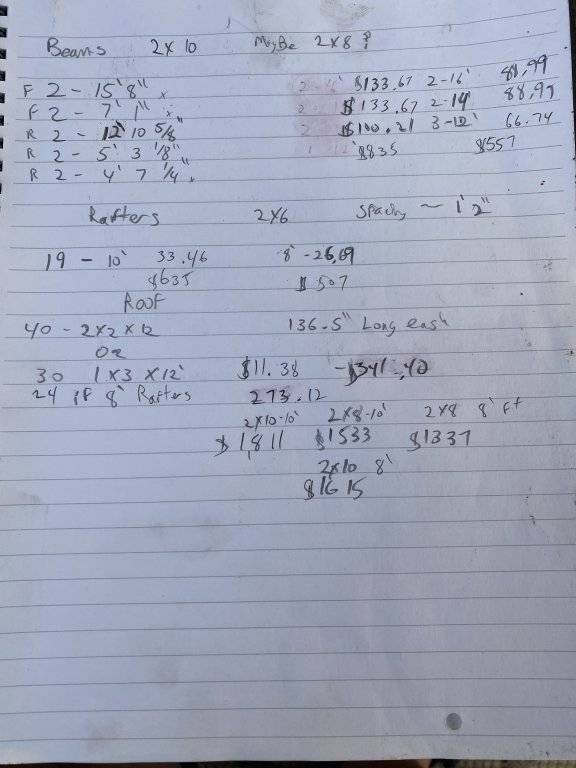 Beams 2x10 Maybe 2x8?
F 2 - 15' 8" x 2-16' $133.67 2-16' 88.99
F 2 - 7' 1" x $133.67 2-14' 88.99
R 2 - 12' 10 5/8 $100.21 3-12' 66.74
R 2 - 5' 3 1/8" $835 $557
R 2 - 4' 7 1/4"
Rafters 2x6 Spacing ~ 1' 2"
19 - 10' 33.46 8' - 26.69
$635 $507
Roof
40 - 2x2x12 136.5" Long each
Or
30 1x3x12' $11.38 - $341.40
24 if 8' Rafters 273.12
2x10-10' 2x8-10' 2x8 8' Ft
$1,811 $1533 $1337
2x10 8'
$1615